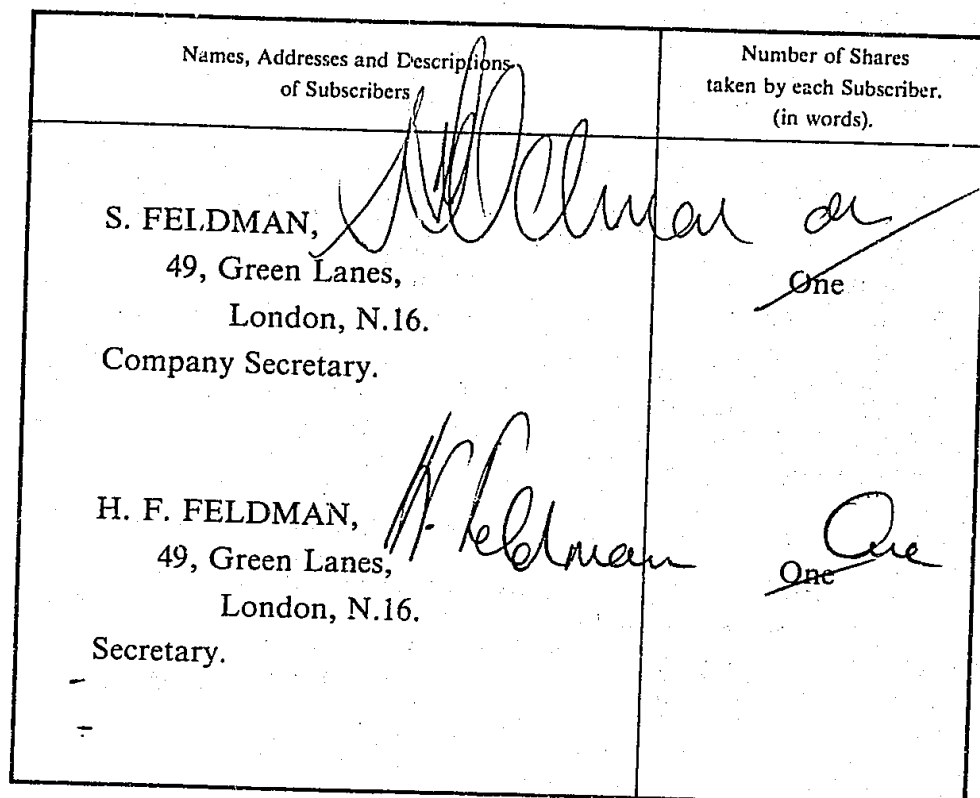 Names, Addresses and Descriptions
of Subscribers
Number of Shares
taken by each Subscriber.
(in words).
S. FELDMAN,
49, Green Lanes,
London, N.16.
Company Secretary.
One
H. F. FELDMAN, H. Feldman
49, Green Lanes,
London, N.16.
Secretary.
One
One